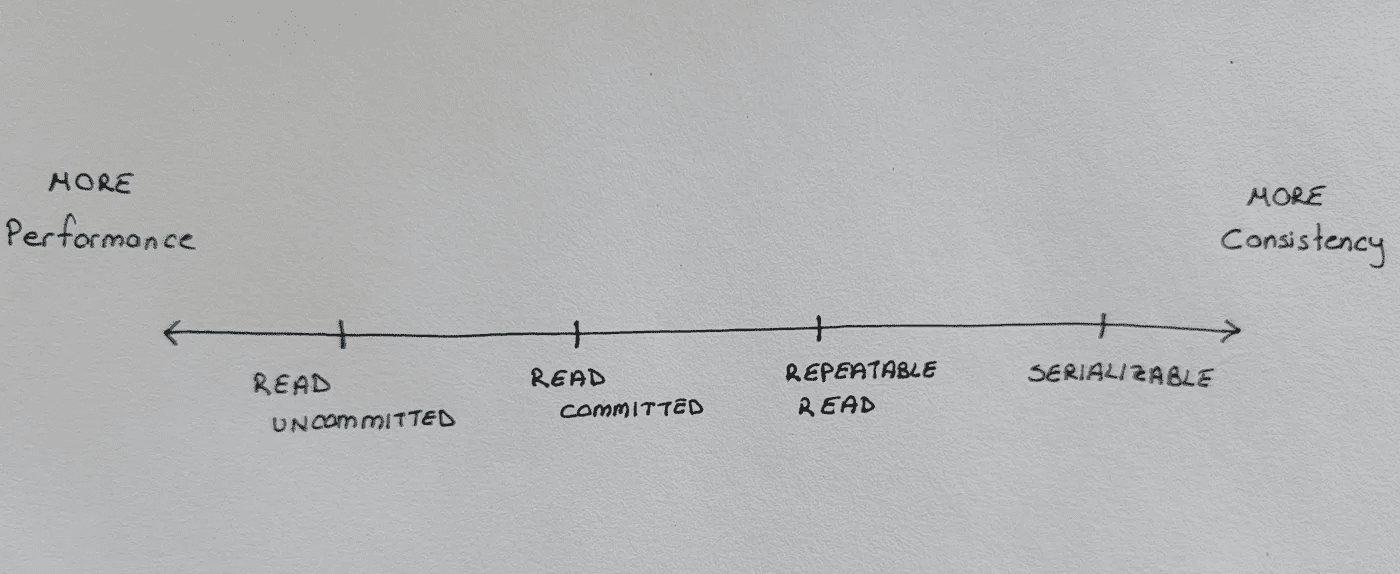 MORE
Performance
MORE
Consistency
READ
UNCOMMITTED
READ
COMMITTED
REPEATABLE
READ
SERIALIZABLE